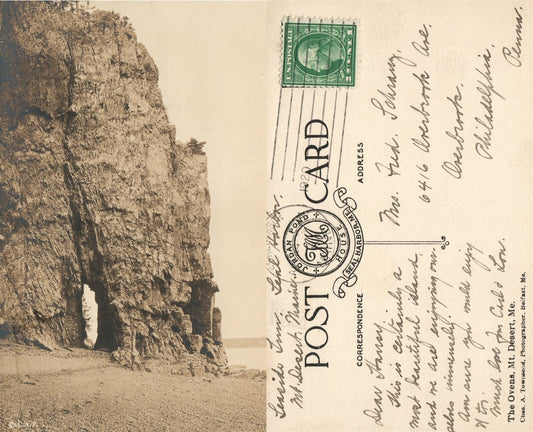 U.S. POSTAGE
1920
POST CARD
JORDAN POND HOUSE
SEAL HARBOR, ME.
CORRESPONDENCE
ADDRESS
Seaside Inn. Seal Harbor
Mt Desert. Maine
Dear Fansy
This is certainly a
most beautiful island
and we are enjoying our-
selves immensely.
Am sure you would enjoy
it too.
Much love from Carl & Lou.
Mrs. Fred.
6416 Overbrook Ave.
Overbrook.
Philadelphia,
Penna.
The Ovens, Mt. Desert, Me.
Chas. A. Townsend, Photographer, Belfast, Me.